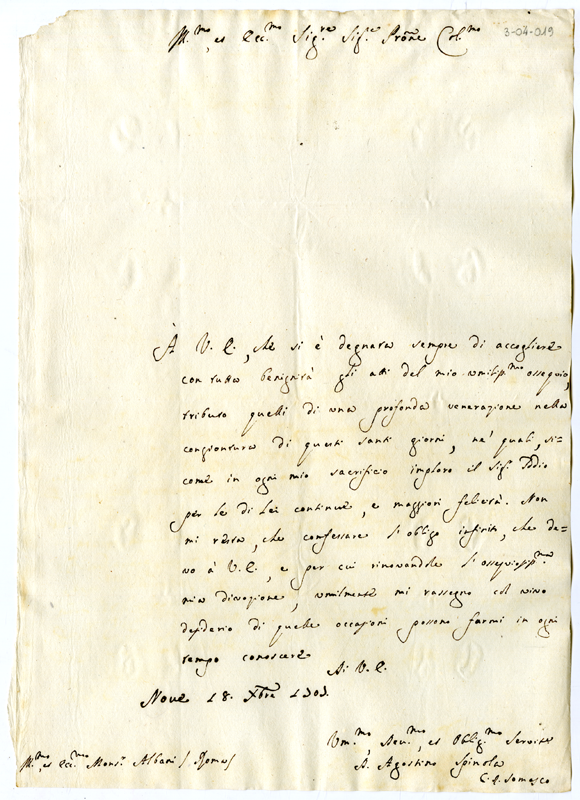 Ill.mo, et Ecc.mo Sig.re Sig.e Prone Col.mo
3-04-019
À V. E., che si è degnata sempre di accogliere
con tutta benignità gli atti del mio umiliss.mo ossequio,
tributo quelli di una profonda venerazione nella
congiontura di questi santi giorni, ne' quali, si=
come in ogni mio sacrificio imploro il Sig. Iddio
per le di Lei continue, e maggiori felicità. Non
mi resta, che confessare l'obligo infinito, che de=
vo à V. E., e per cui rinovandole l'ossequiosiss.ma
mia divozione, umilmente mi rassegno col vivo
desiderio di quelle occasioni possono farmi in ogni
tempo conoscere
Di V. E.
Nove 18. Xbre 1703.
Um.mo, Dev.mo, et Oblig.mo Servitore
D. Agostino Spinola
C. R. Somasco
Ill.mo, et Ecc.mo Mons.r Albani / Roma /